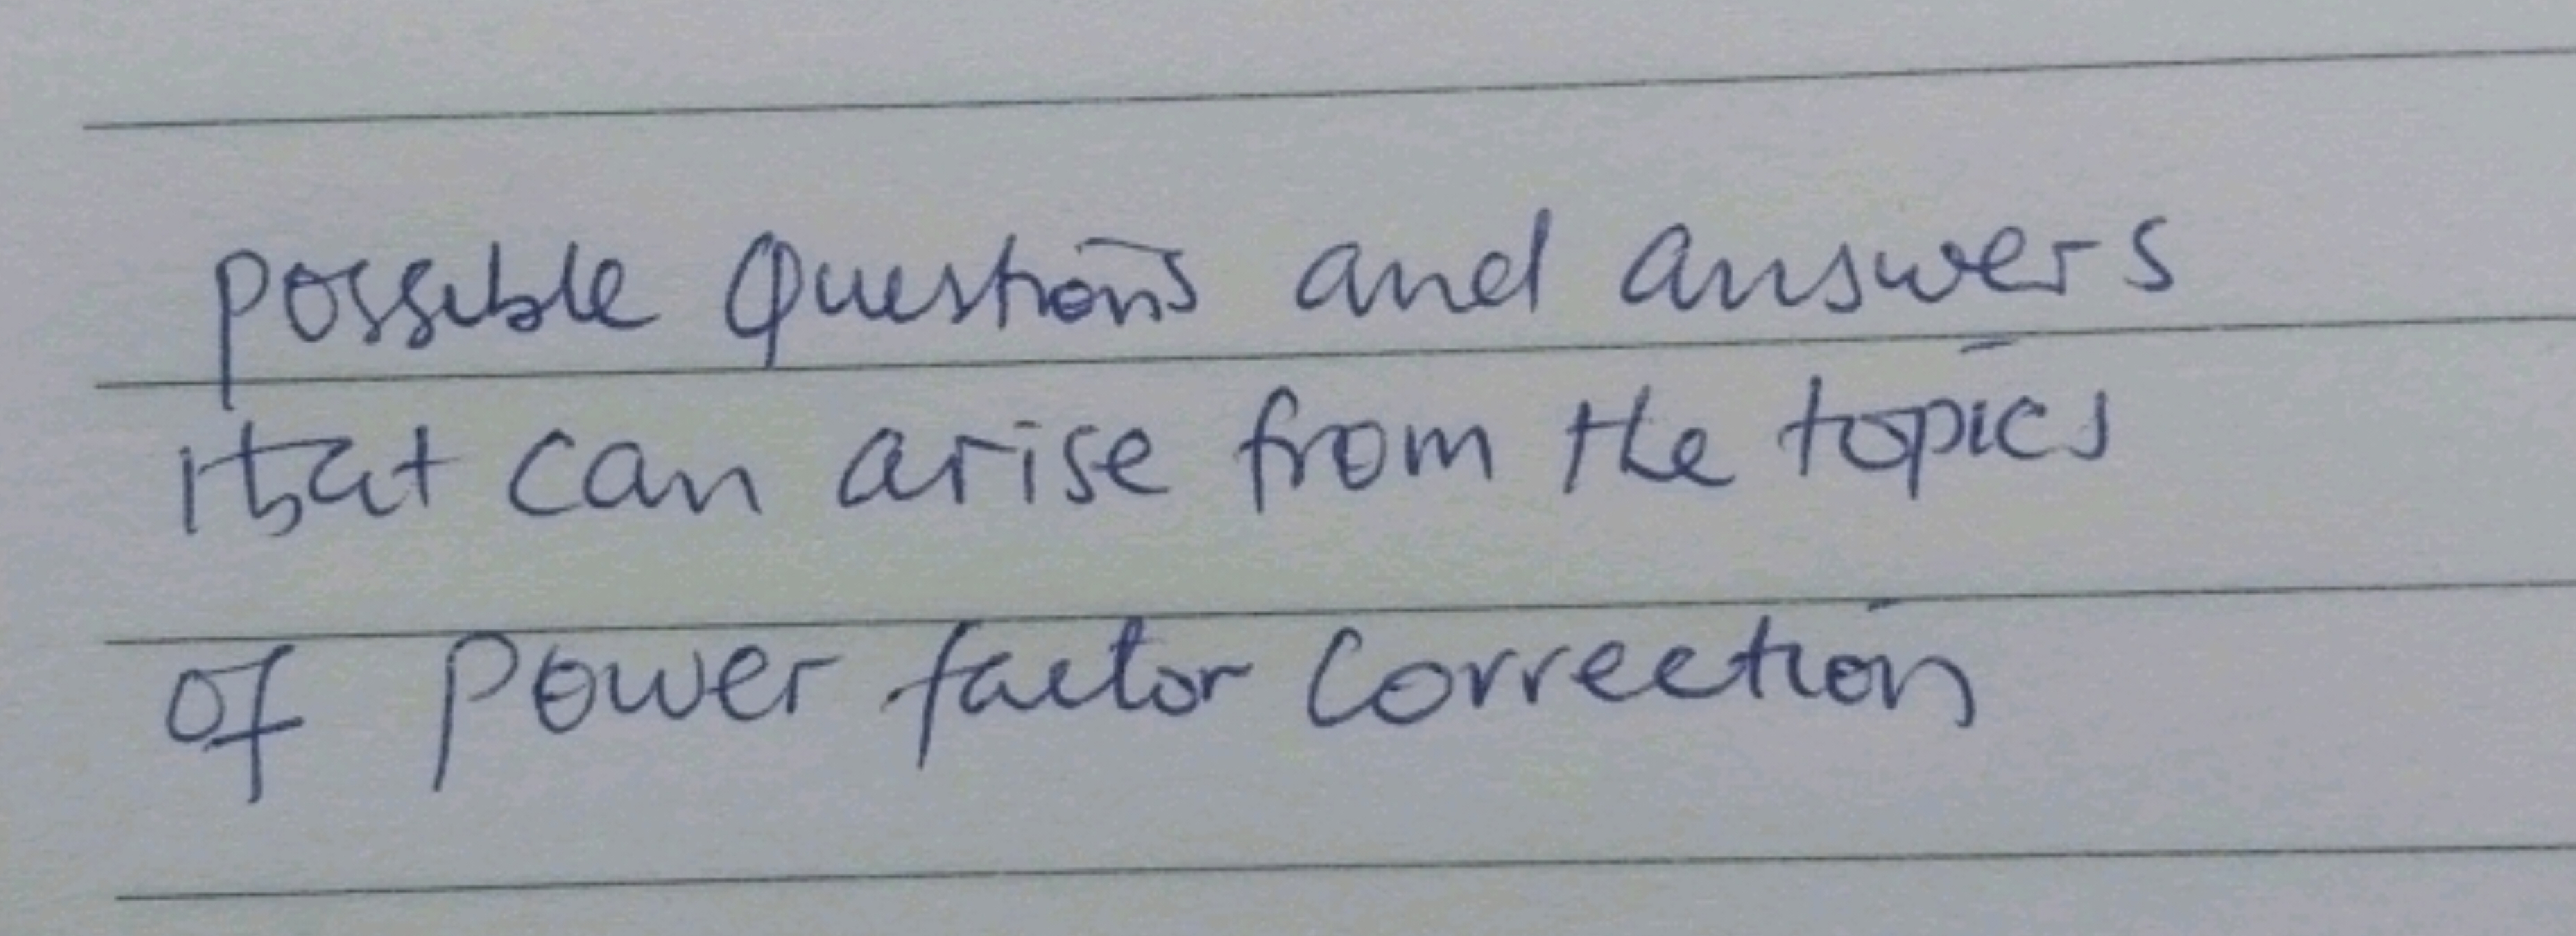 possible Questions and answers
that can arise from the topics
of power factor correction